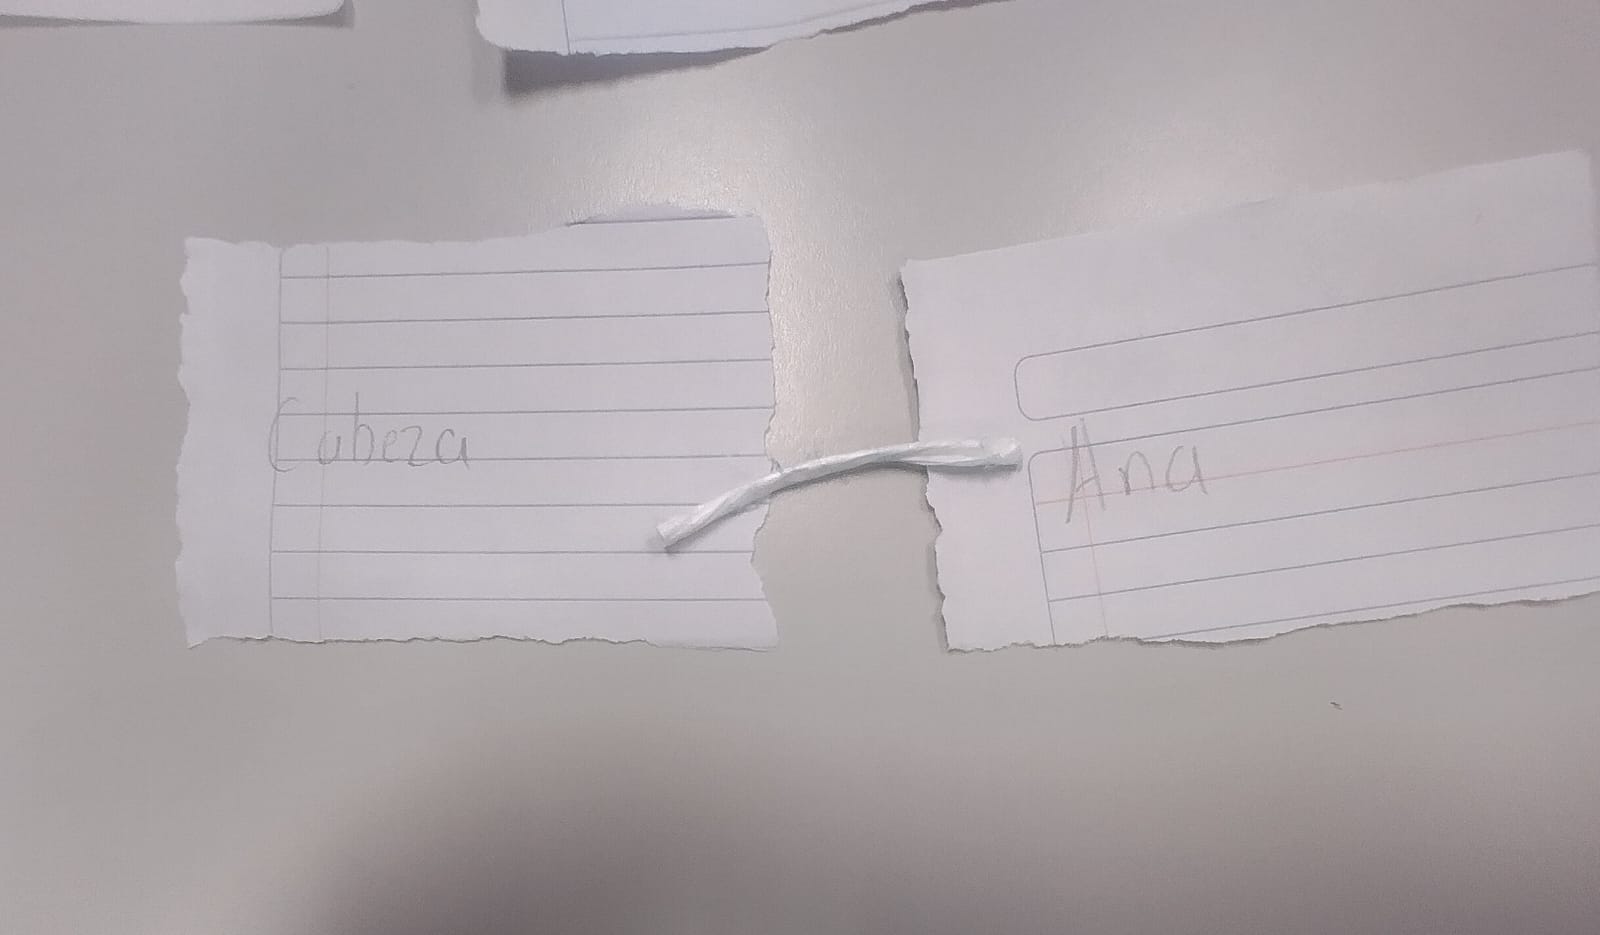 Cabeza
Ana